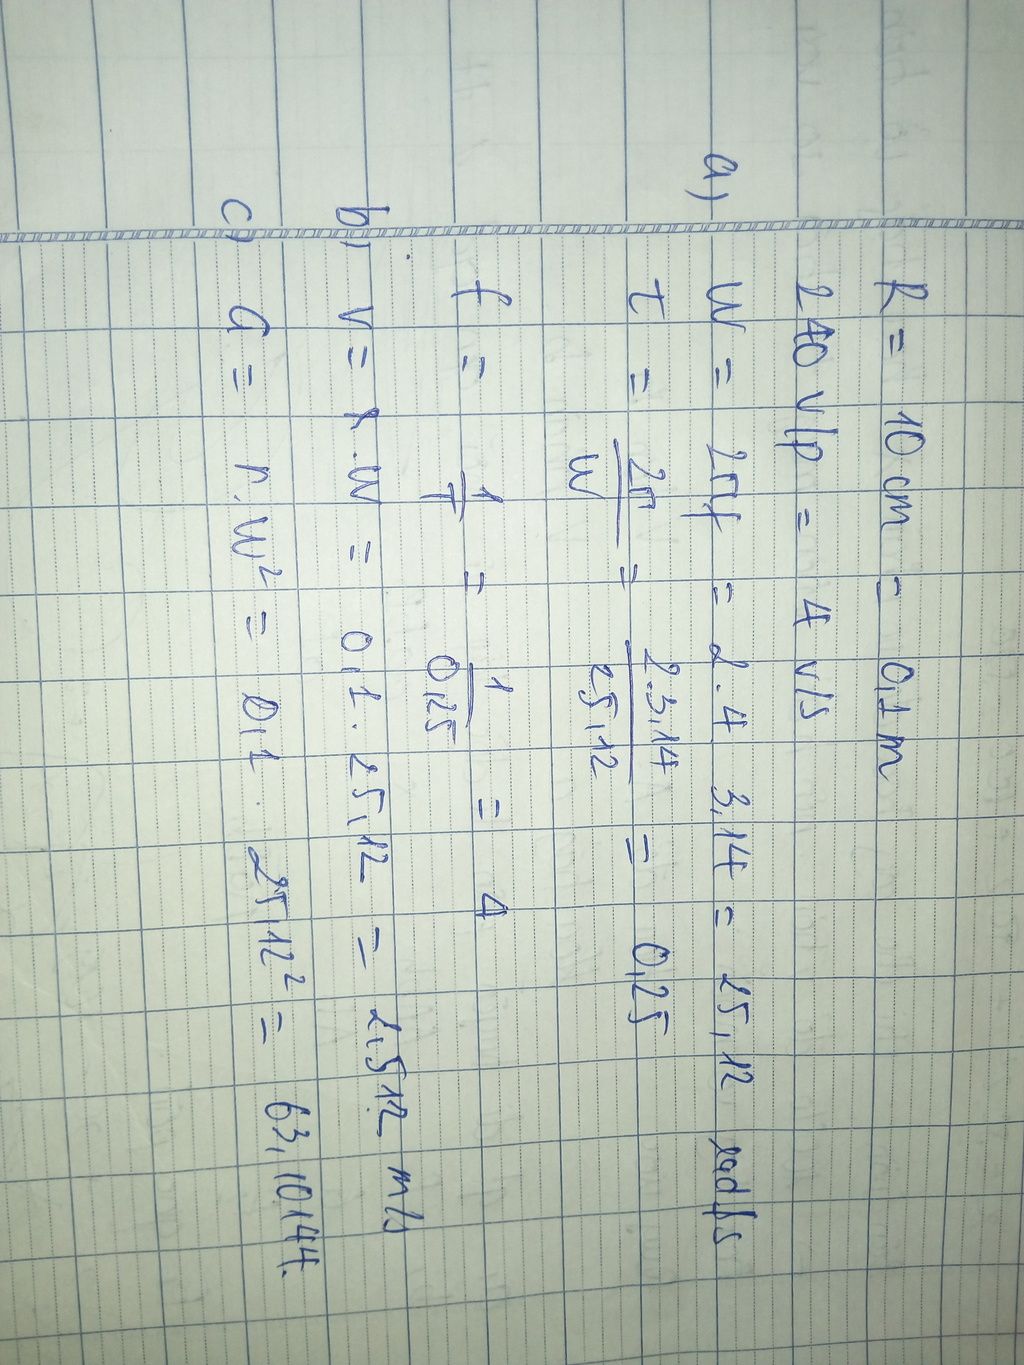 R = 10 cm = 0,1 m
240 v/p = 4 v/s
a) W = 2πf = 2.4 3,14 = 25,12 rad/s
T = 2π/W = 2.3,14/25,12 = 0,25
f = 1/T = 1/0,25 = 4
b) v = r.W = 0,1.25,12 = 2,512 m/s
c) a = r.W² = 0,1.25,12² = 63,10144.